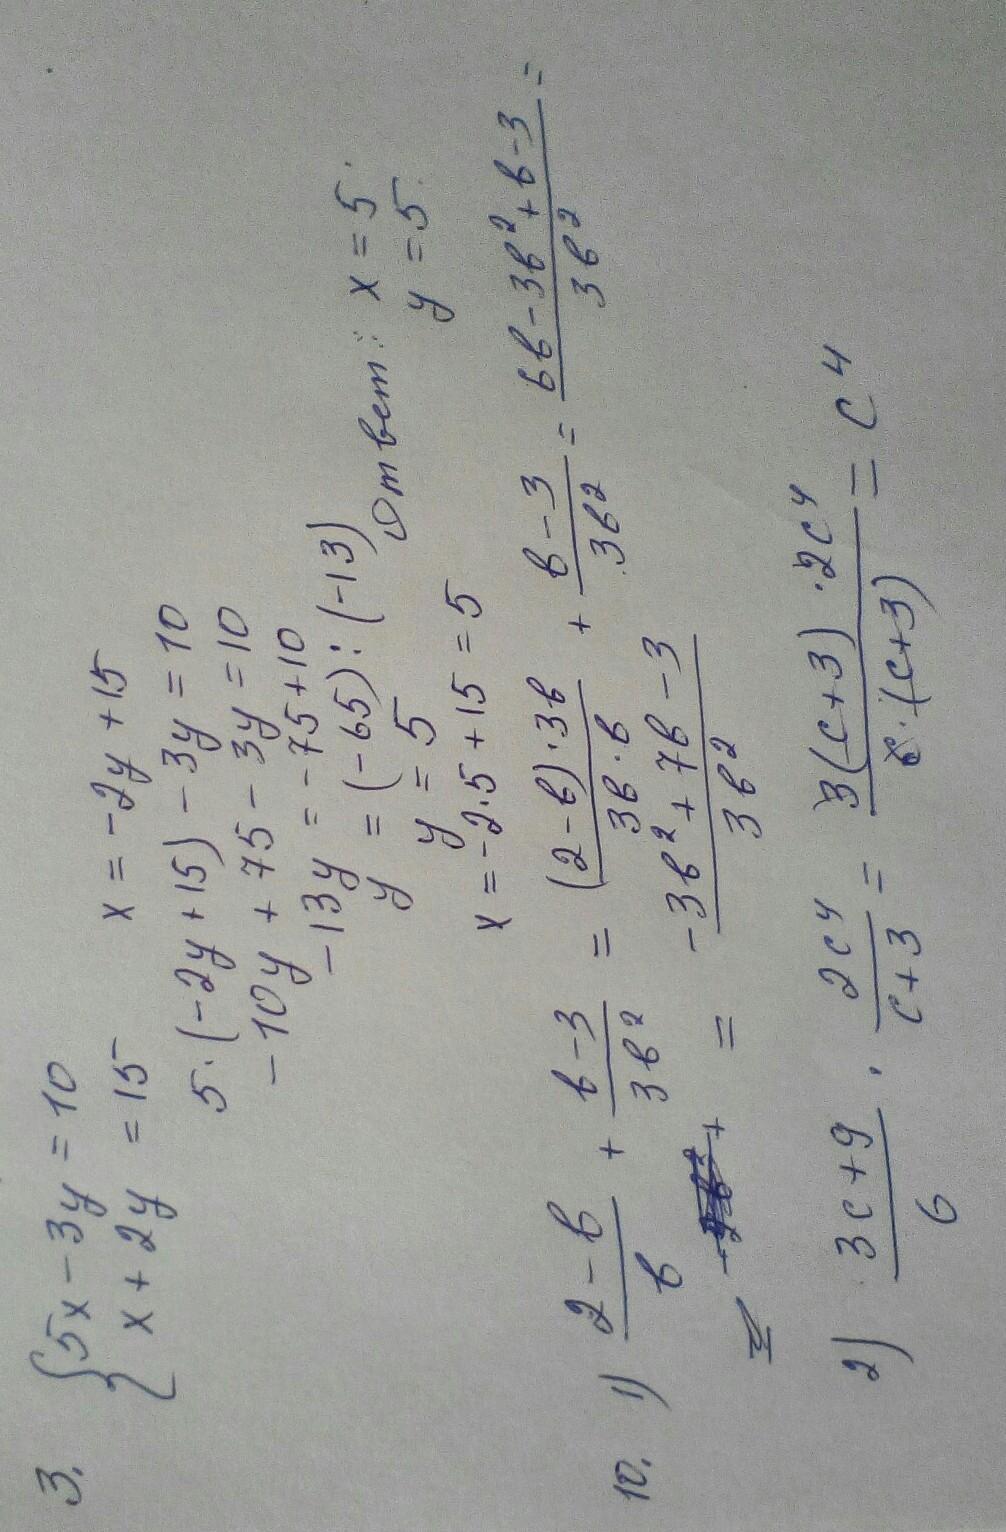 3. {5x - 3y = 10
x + 2y = 15 x = -2y + 15
5·(-2y + 15) - 3y = 10
-10y + 75 - 3y = 10
-13y = -75 + 10
y = (-65) : (-13)
y = 5
x = -2·5 + 15 = 5
Ответ: x = 5.
y = 5.
10. 1) (2 - b)/b + (b - 3)/3b² = ((2 - b)·3b)/(3b·b) + (b - 3)/3b² = (6b - 3b² + b - 3)/3b² =
= (-3b² + 7b - 3)/3b²
2) (3c + 9)/6 · 2c⁴/(c + 3) = (3(c + 3)·2c⁴)/(6·(c + 3)) = c⁴